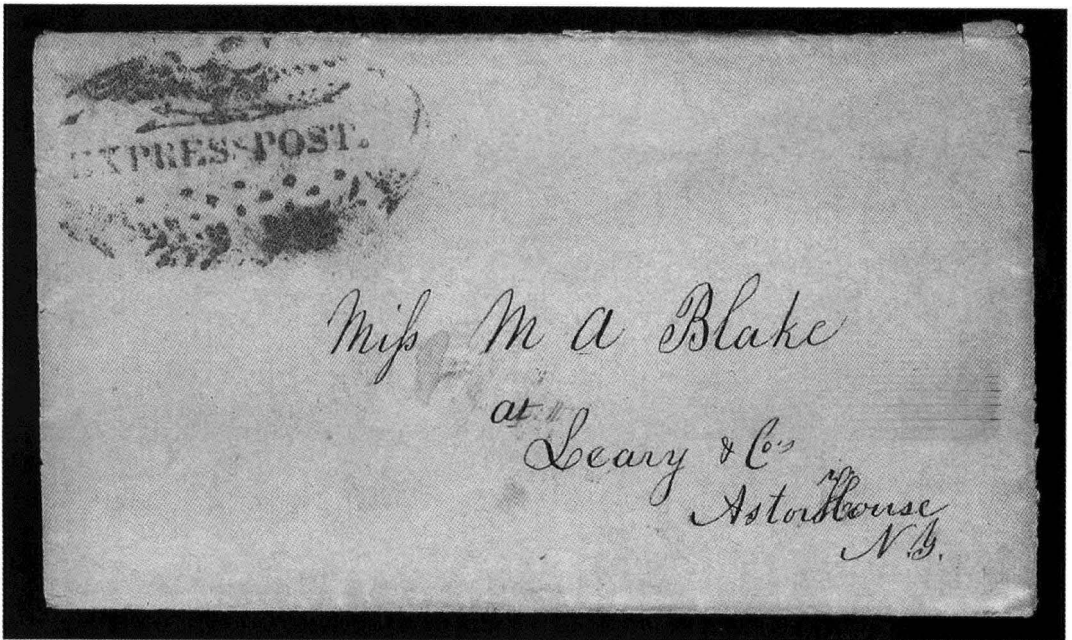 EXPRESS POST.
Miss M A Blake
at
Leary & Co's
Astor House
N.Y.